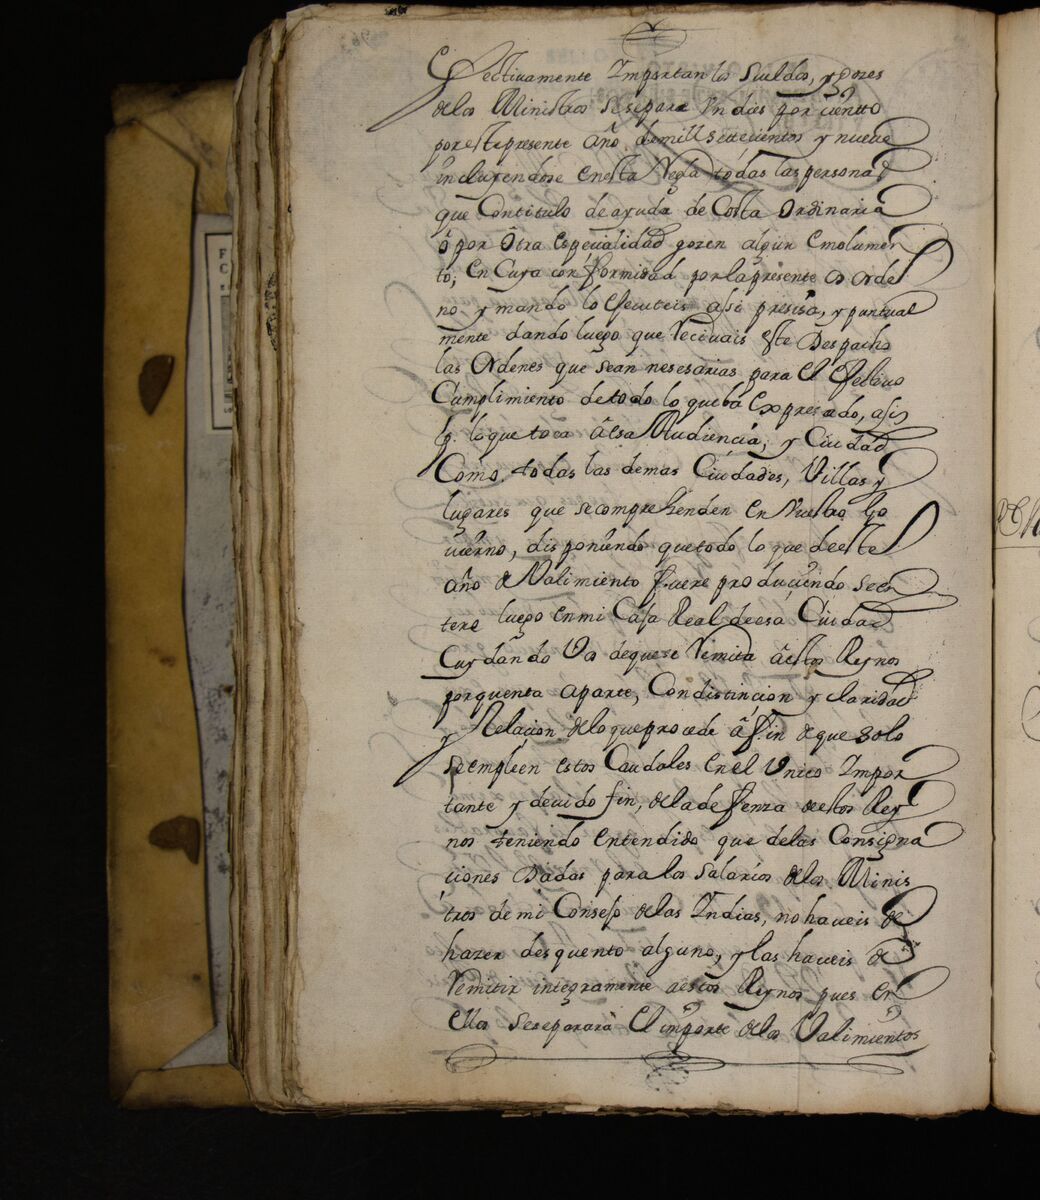 efectivamente Importan los sueldos, y gozes
delos Ministros se separe Un dies por ciento
por este presente año demill settecientos y nueve
incluyendose en esta Regla todas las personas
que Contitulo de ayuda de Costa Ordinaria
ô por ôtra especialidad gozen algun emolumen
to; en Cuya conformidad por la presente os orde
no y mando lo executeis assi presisa, y puntual
mente dando luego que Recivais este Despacho
las Ordenes que sean nesesarias para el efectivo
Cumplimiento de todo lo que ba expresado, asi
lo que toca âesa Audiencia, y Ciudad
Como todas las demas Ciudades, Villas y
lugares que se comprehenden en Vuestro Go
vierno, disponiendo que todo lo que de este
año de Valimiento fuere produciendo se en
tere luego en mi Caja Real de esa Ciudad
Cuydando Vos de que se Remita âestos Reynos
por quenta aparte, Con distincion y claridad
y Relacion delo que procede â fin de que solo
se empleen estos Caudales en el Unico Impor
tante y devido fin, dela defensa de estos Rey
nos teniendo entendido que delas Consigna
ciones Dadas para los salarios delos Minis
tros de mi Consejo delas Indias, no haveis de
hazer desquento alguno, y las haveis de
Remitir integramente aestos Reynos pues en
ellos se separarà el importe delos Valimientos